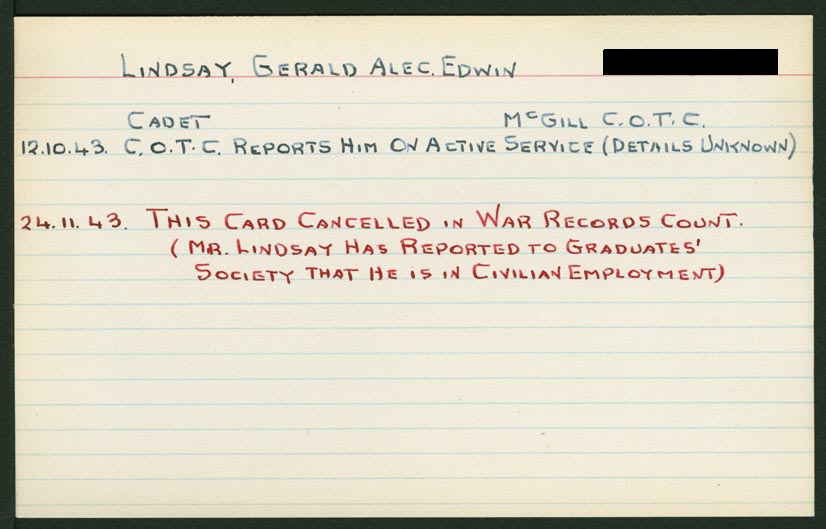 LINDSAY, GERALD ALEC. EDWIN
CADET McGILL C.O.T.C.
12.10.43. C.O.T.C. REPORTS HIM ON ACTIVE SERVICE (DETAILS UNKNOWN)
24.11.43. THIS CARD CANCELLED IN WAR RECORDS COUNT.
(MR. LINDSAY HAS REPORTED TO GRADUATES'
SOCIETY THAT HE IS IN CIVILIAN EMPLOYMENT)